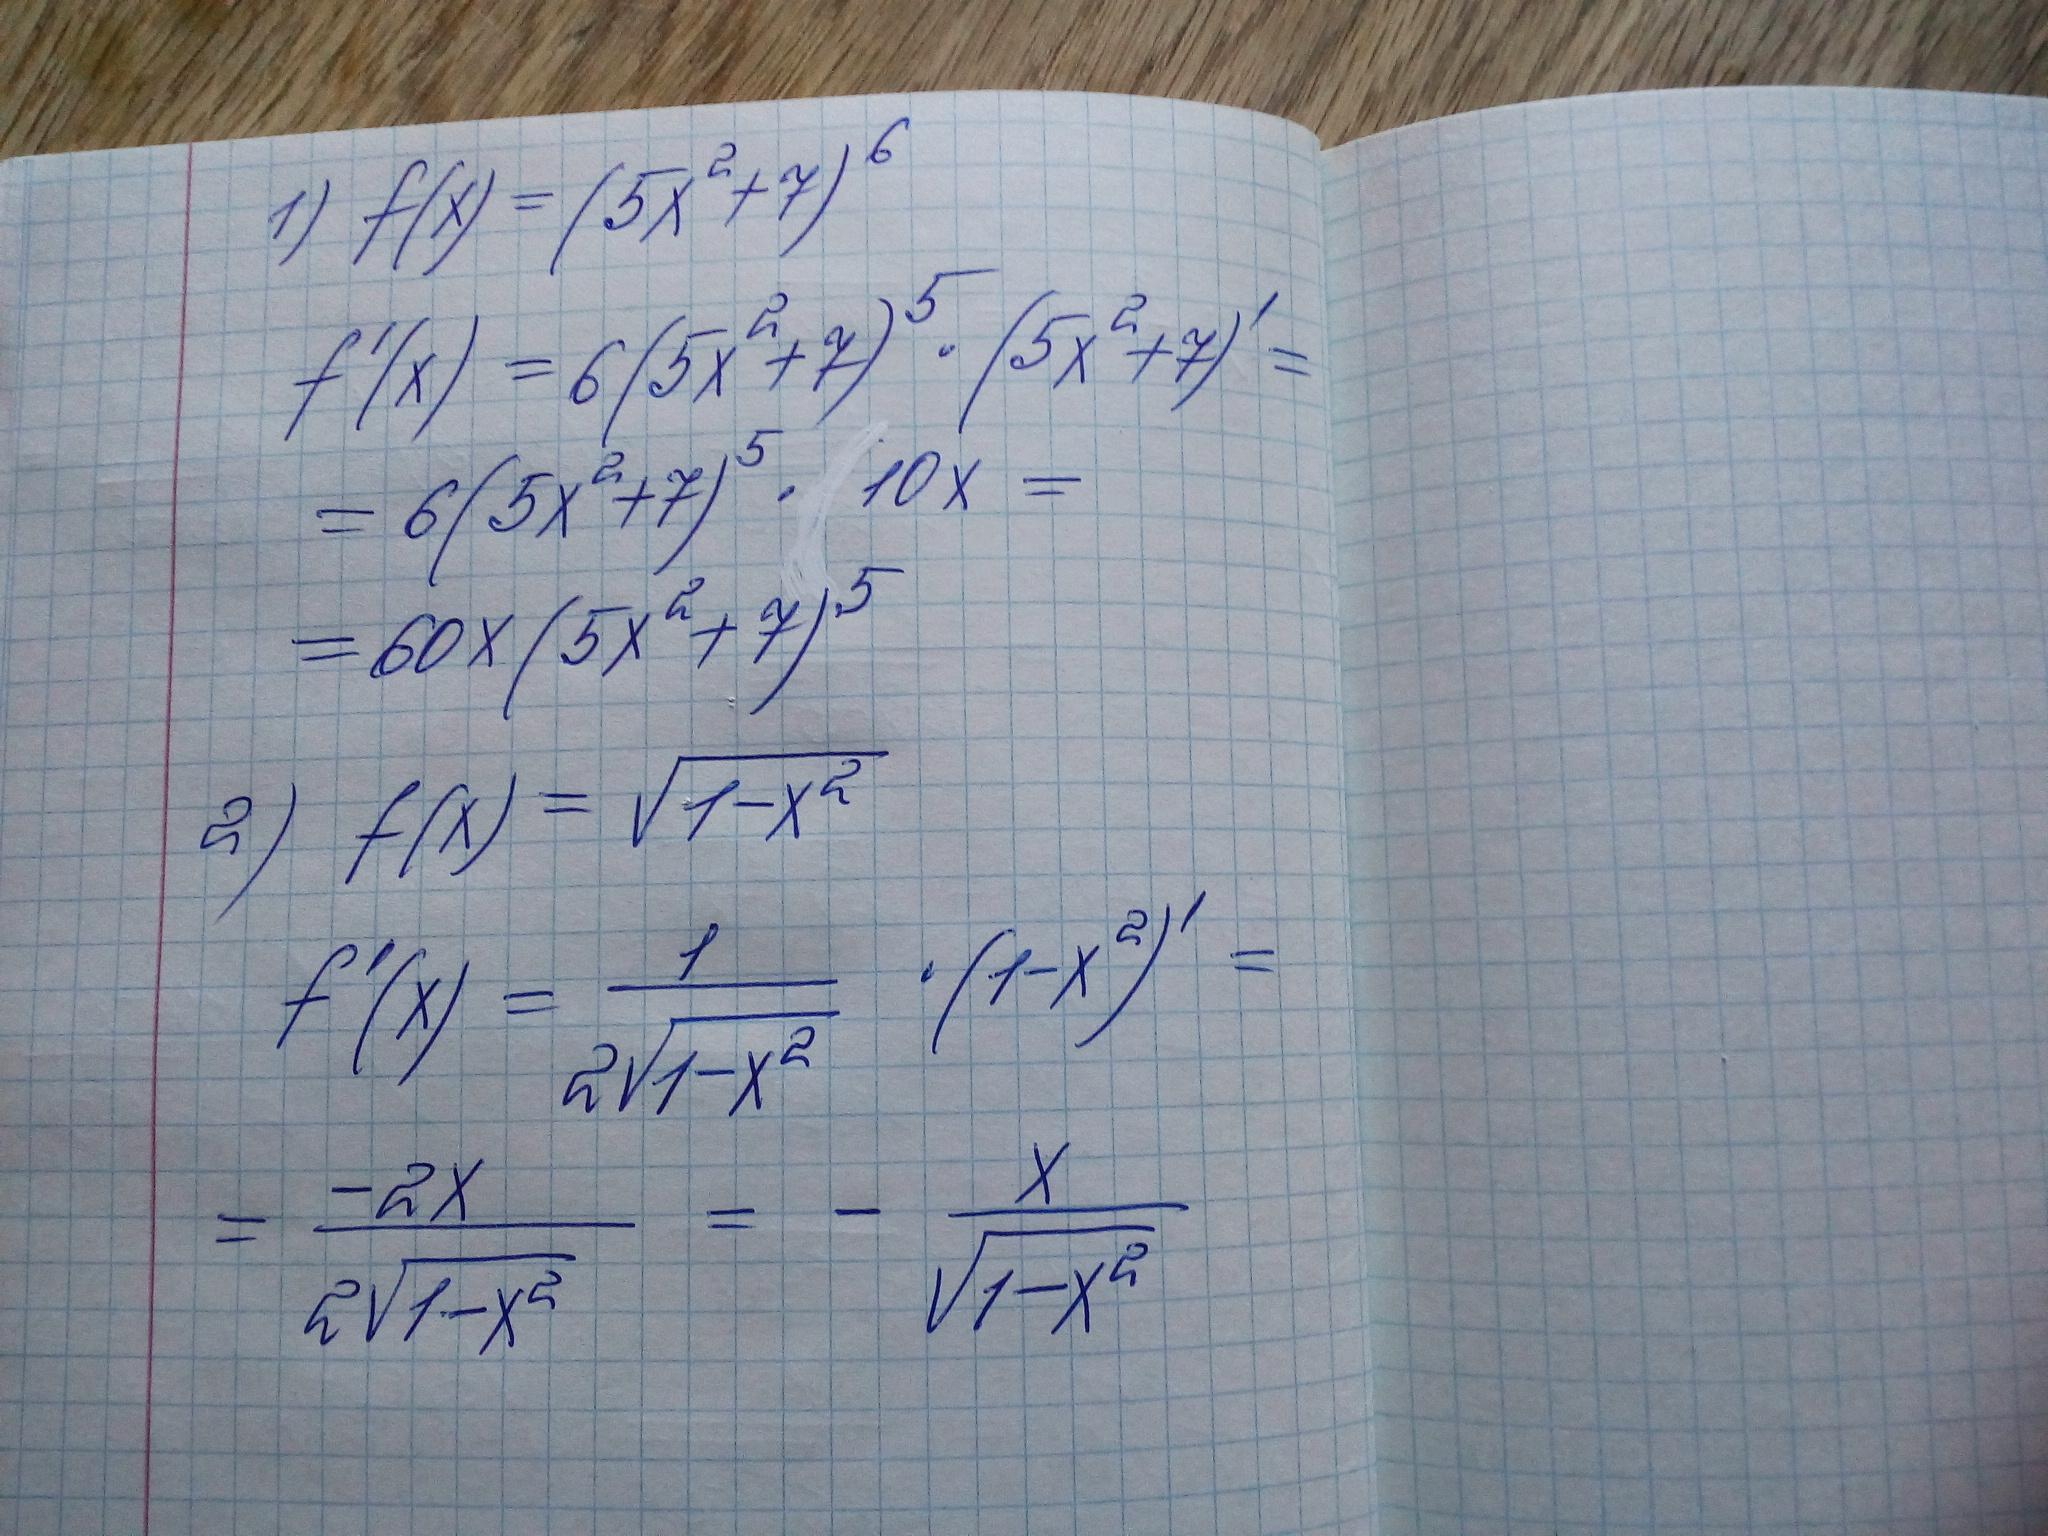 1) f(x) = (5x²+7)⁶
f'(x) = 6(5x²+7)⁵ · (5x²+7)' =
= 6(5x²+7)⁵ · 10x =
= 60x(5x²+7)⁵
2) f(x) = √(1-x²)
f'(x) = 1/(2√(1-x²)) · (1-x²)' =
= -2x/(2√(1-x²)) = - x/√(1-x²)